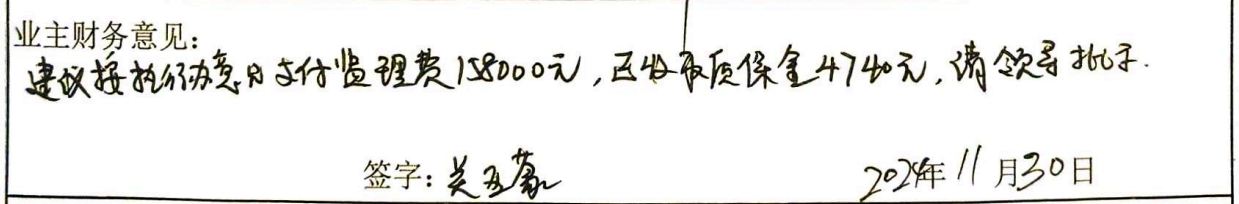 业主财务意见：
建议按执行办意见支付监理费158000元，已收取质保金4740元，请领导批示.
签字：
2024年11月30日